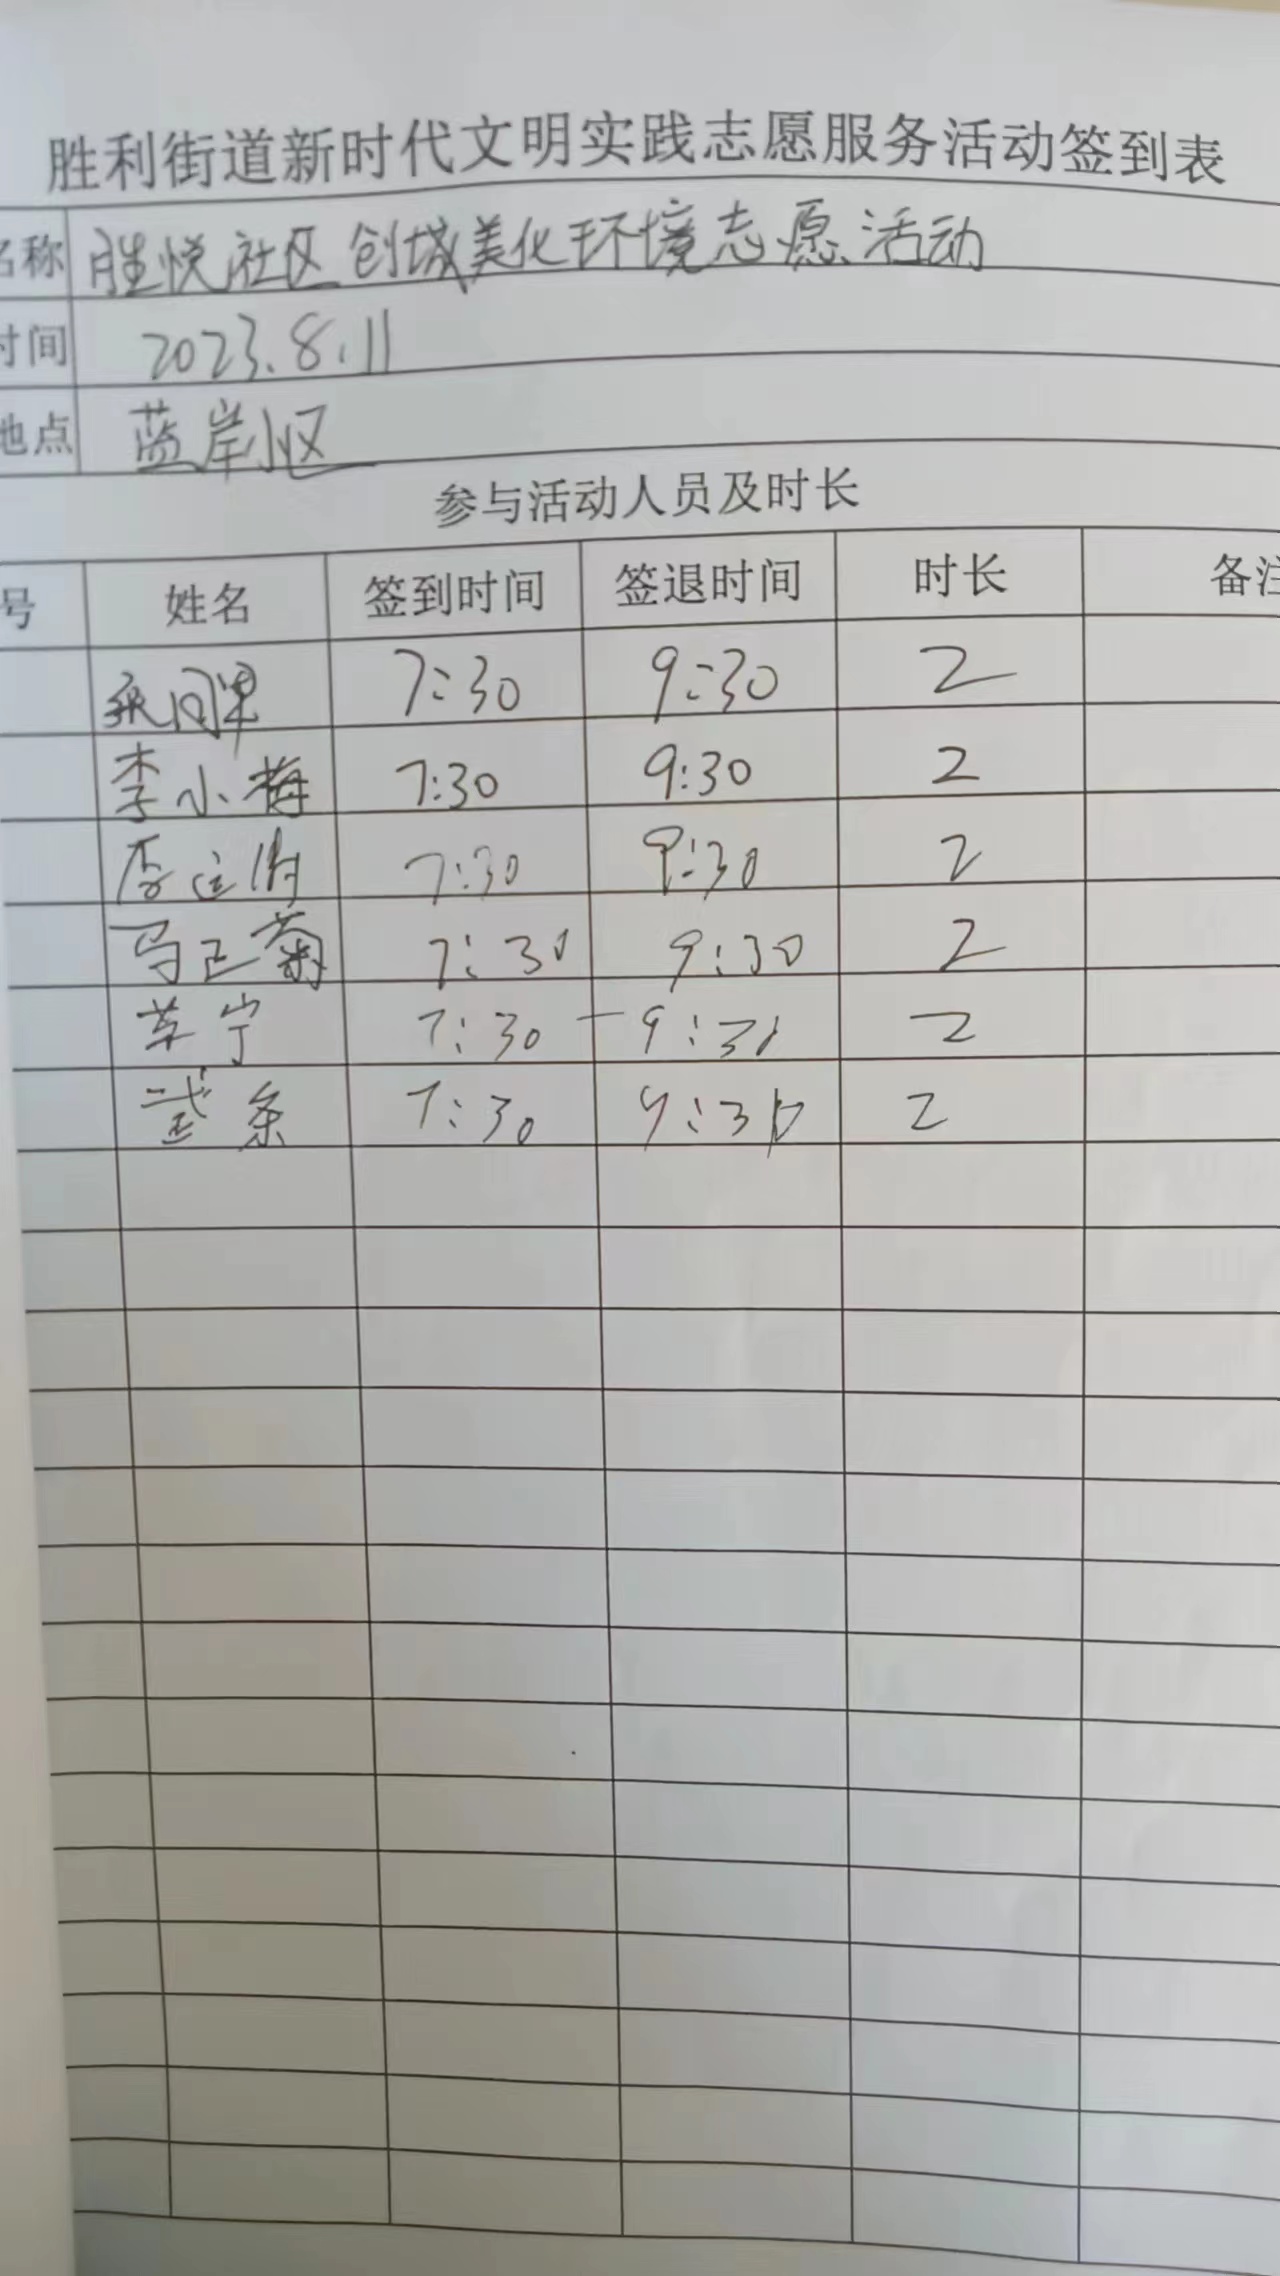 胜利街道新时代文明实践志愿服务活动签到表
名称 胜悦社区创城美化环境志愿活动
时间 2023.8.11
地点 蓝岸小区
参与活动人员及时长
号 姓名 签到时间 签退时间 时长 备注
7:30 9:30 2
李小梅 7:30 9:30 2
7:30 9:30 2
马正菊 7:30 9:30 2
7:30 9:30 2
7:30 9:30 2